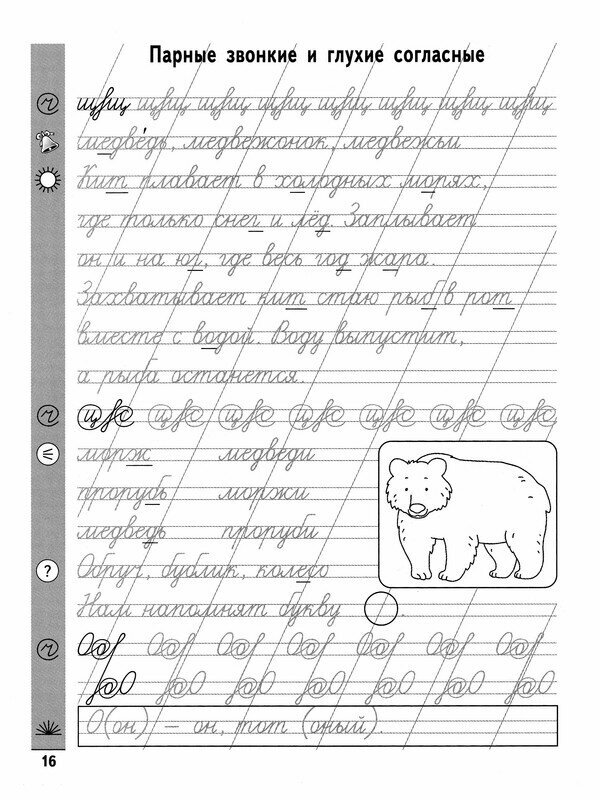 Парные звонкие и глухие согласные
медведь, медвежонок, медвежьи
Кит плавает в холодных морях,
где только снег и лёд. Заплывает
он и на юг, где весь год жара.
Захватывает кит стаю рыб в рот
вместе с водой. Воду выпустит,
а рыба останется.
морж медведи
прорубь моржи
медведь проруби
?
Обруч, бублик, колесо
Нам напомнят букву
О(он) – он, тот (оный).
16